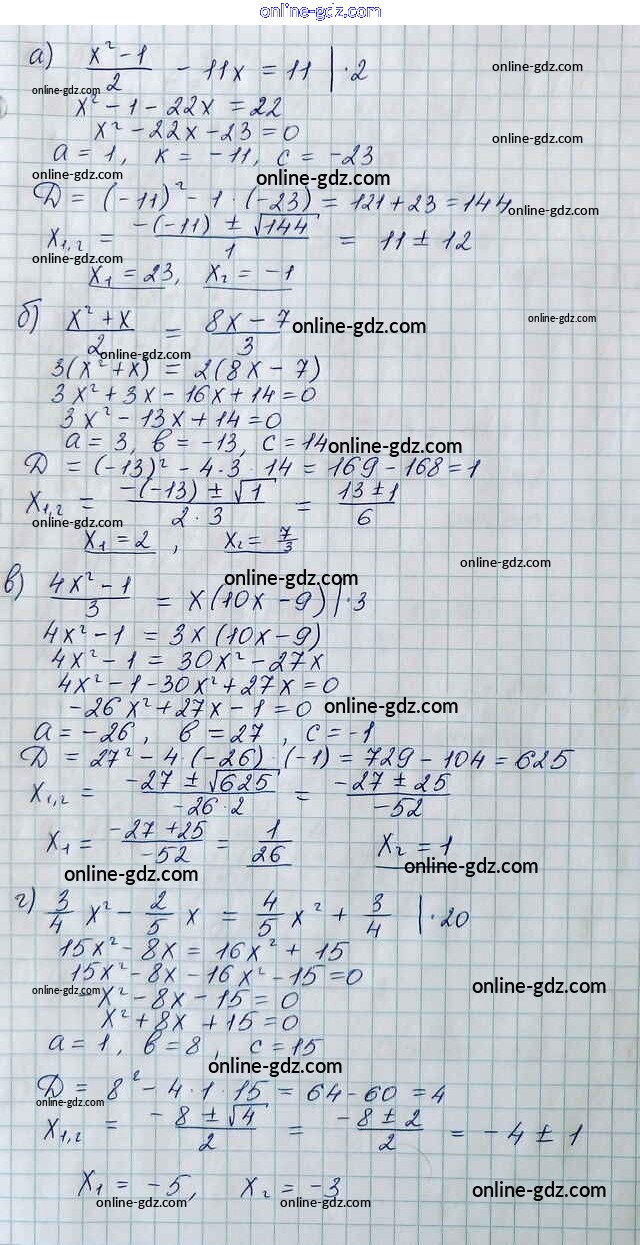 online-gdz.com
а) (x² - 1)/2 - 11x = 11 | · 2 online-gdz.com
online-gdz.com
x² - 1 - 22x = 22
x² - 22x - 23 = 0 online-gdz.com
a = 1, к = -11, c = -23
online-gdz.com online-gdz.com
D = (-11)² - 1 · (-23) = 121 + 23 = 144 online-gdz.com
x₁,₂ = (-(-11) ± √144)/1 = 11 ± 12
online-gdz.com
x₁ = 23, x₂ = -1
б) (x² + x)/2 = (8x - 7)/3 online-gdz.com online-gdz.com
online-gdz.com
3(x² + x) = 2(8x - 7)
3x² + 3x - 16x + 14 = 0
3x² - 13x + 14 = 0
a = 3, в = -13, c = 14 online-gdz.com
D = (-13)² - 4 · 3 · 14 = 169 - 168 = 1
x₁,₂ = (-(-13) ± √1)/(2 · 3) = (13 ± 1)/6
online-gdz.com
x₁ = 2, x₂ = 7/3
online-gdz.com
в) (4x² - 1)/3 = x(10x - 9) | · 3 online-gdz.com
4x² - 1 = 3x(10x - 9)
4x² - 1 = 30x² - 27x
4x² - 1 - 30x² + 27x = 0
-26x² + 27x - 1 = 0 online-gdz.com
a = -26, в = 27, c = -1
D = 27² - 4 · (-26) · (-1) = 729 - 104 = 625
x₁,₂ = (-27 ± √625)/(-26 · 2) = (-27 ± 25)/(-52)
x₁ = (-27 + 25)/(-52) = 1/26 x₂ = 1
online-gdz.com online-gdz.com
г) 3/4 x² - 2/5 x = 4/5 x² + 3/4 | · 20
15x² - 8x = 16x² + 15
15x² - 8x - 16x² - 15 = 0
online-gdz.com online-gdz.com
-x² - 8x - 15 = 0
x² + 8x + 15 = 0
a = 1, в = 8, c = 15
online-gdz.com
D = 8² - 4 · 1 · 15 = 64 - 60 = 4
online-gdz.com
x₁,₂ = (-8 ± √4)/2 = (-8 ± 2)/2 = -4 ± 1
x₁ = -5, x₂ = -3 online-gdz.com
online-gdz.com online-gdz.com